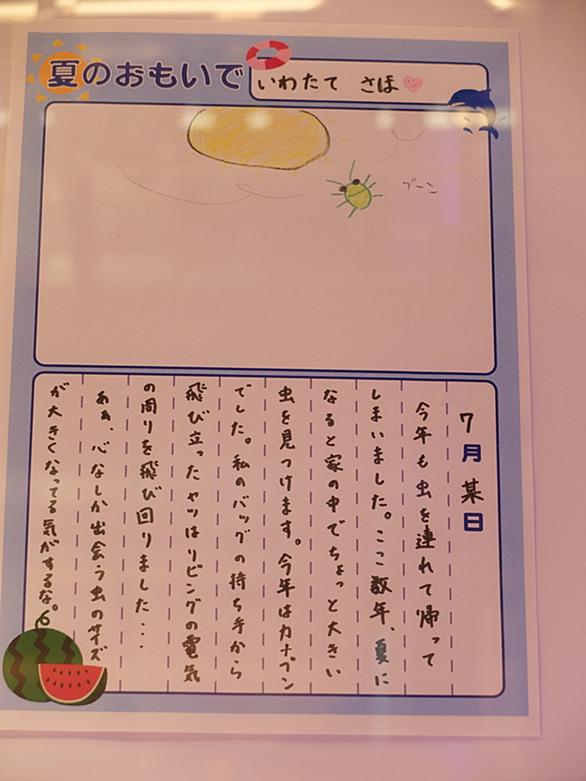 夏のおもいで
いわたて さほ
ブーン
7月某日
今年も虫を連れて帰って
しまいました。ここ数年、夏に
なると家の中でちょっと大きい
虫を見つけます。今年はカナブン
でした。私のバッグの持ち手から
飛び立ったヤツはリビングの電気
の周りを飛び回りました・・・
あぁ、心なしか出会う虫のサイズ
が大きくなってる気がするな。